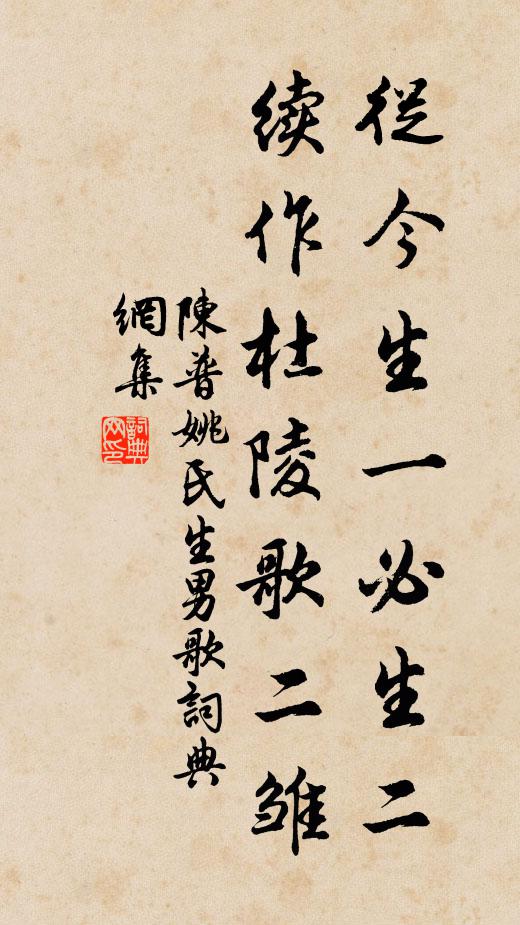 從今生一必生二
續作杜陵歌二雏
陳普姚氏生男歌詞典
網集
詞典
网印